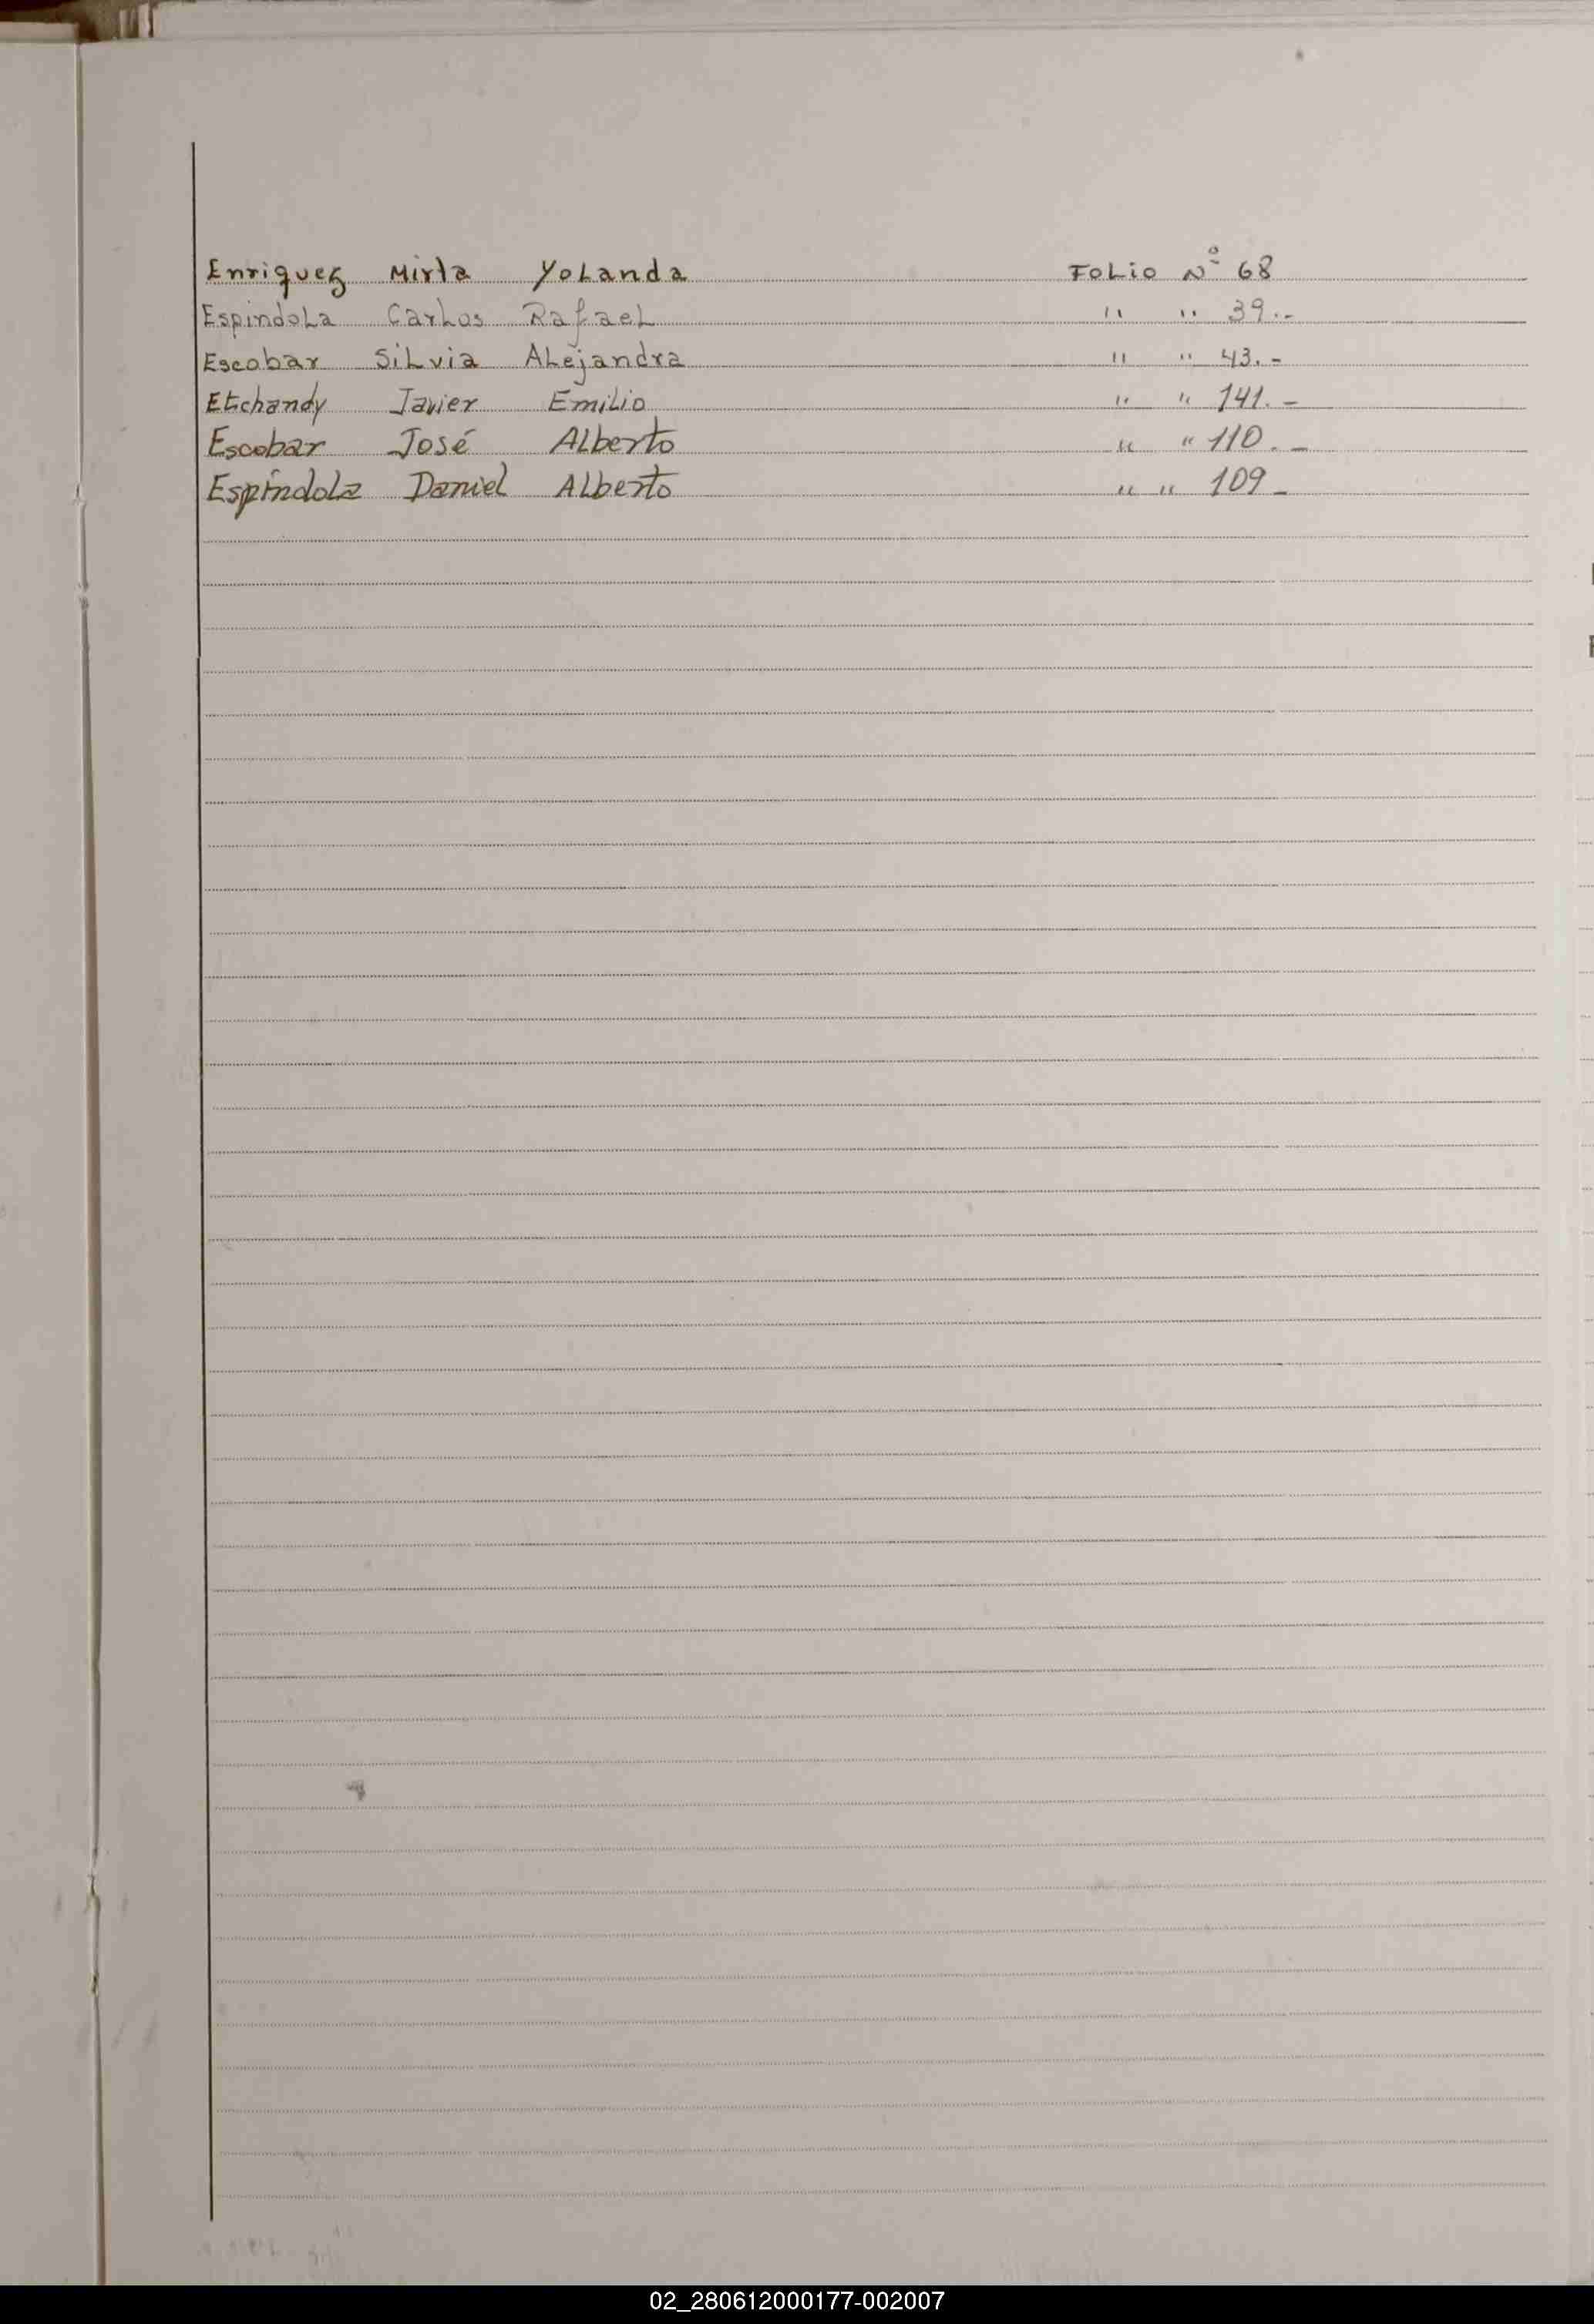 Enriquez Mirta Yolanda Folio Nº 68
Espindola Carlos Rafael " " 39.-
Escobar Silvia Alejandra " " 43.-
Etchandy Javier Emilio " " 141.-
Escobar José Alberto " " 110.-
Espíndola Daniel Alberto " " 109-
02_280612000177-002007